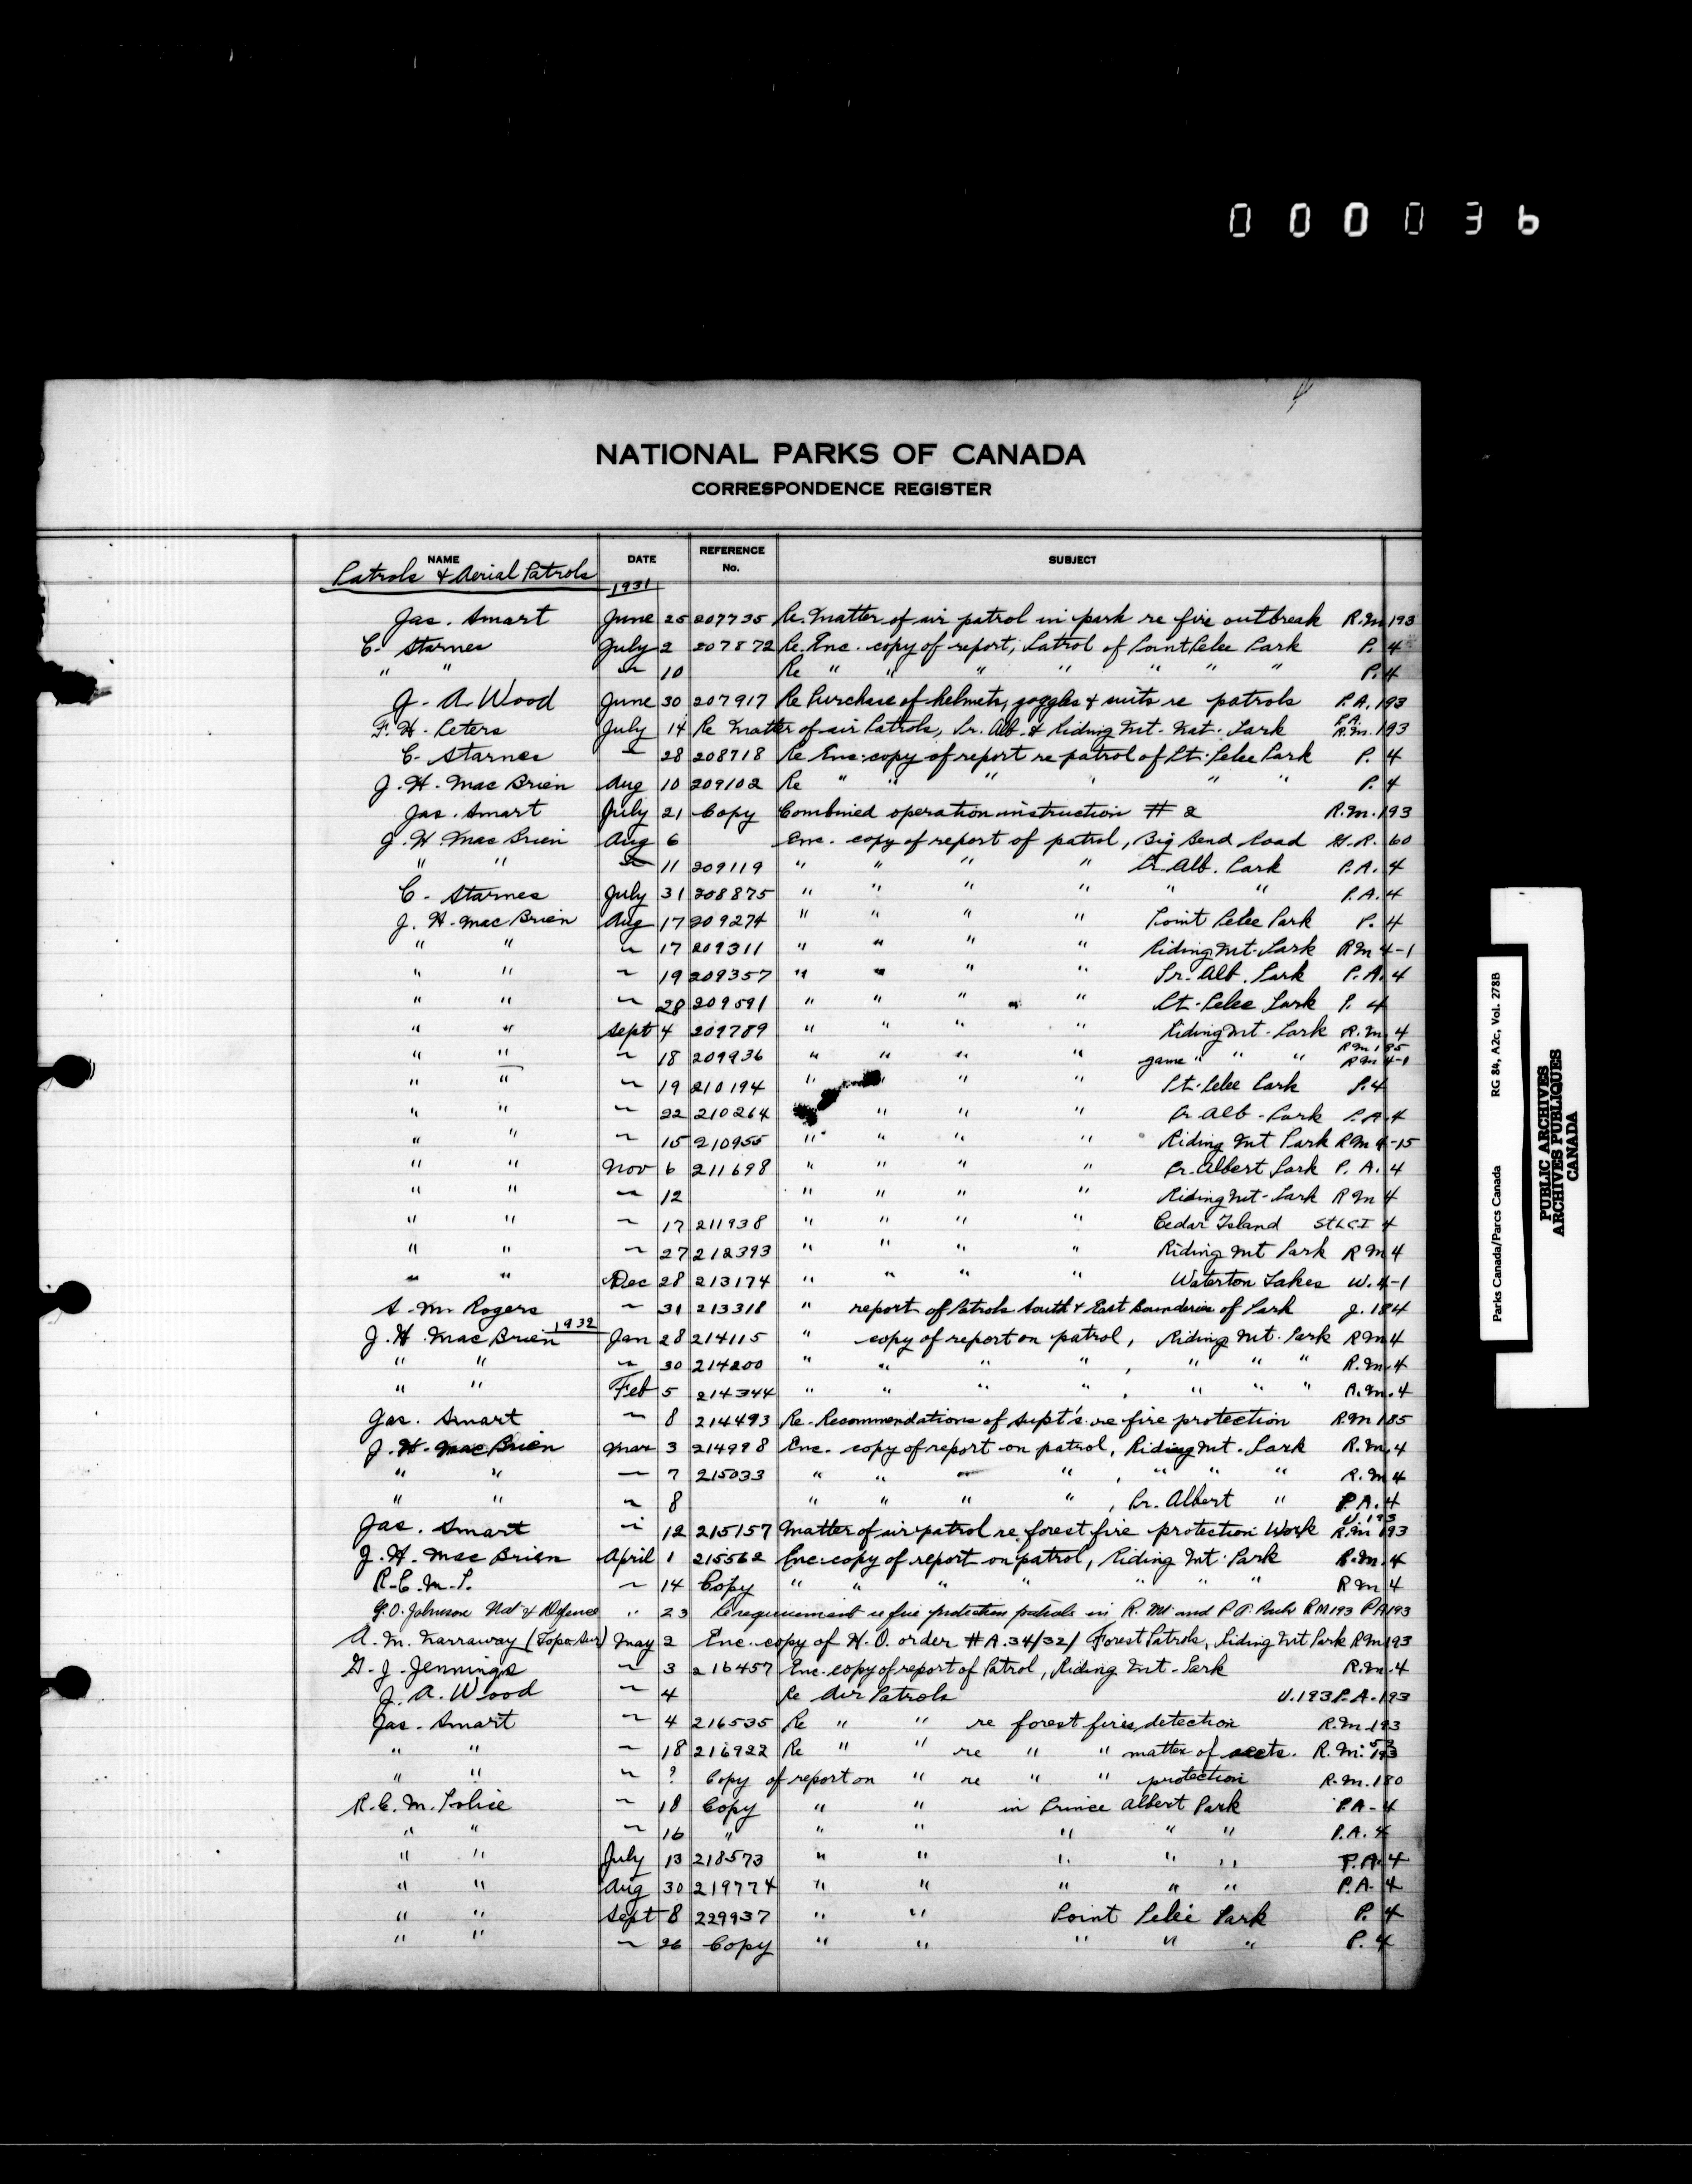 000036
4
NATIONAL PARKS OF CANADA
CORRESPONDENCE REGISTER
NAME DATE REFERENCE No. SUBJECT
Patrols & Aerial Patrols 1931
Jas. Smart June 25 207735 Re. Matter of air patrol in park re fire outbreak R.M. 193
C. Starnes July 2 207872 Re. Enc. copy of report, Patrol of Point Pelee Park P. 4
" " ~ 10 Re " " " " " " " P. 4
J. A. Wood June 30 207917 Re Purchase of helmets, goggles & suits re patrols P.A. 193
F. H. Peters July 14 Re Matter of air Patrols, Pr. Alb. & Riding Mt. Nat. Park P.A. R.M. 193
C. Starnes ~ 28 208718 Re Enc. copy of report re patrol of Pt. Pelee Park P. 4
J. H. MacBrien Aug 10 209102 Re " " " " " " P. 4
Jas. Smart July 21 Copy Combined operation instruction # 2 R.M. 193
J. H. MacBrien Aug 6 Enc. copy of report of patrol, Big Bend Road G.R. 60
" " ~ 11 209119 " " " " Pr. Alb. Park P.A. 4
C. Starnes July 31 208875 " " " " " " P.A. 4
J. H. MacBrien Aug 17 209274 " " " " Point Pelee Park P. 4
" " ~ 17 209311 " " " " Riding Mt. Park RM 4-1
" " ~ 19 209357 " " " " Pr. Alb. Park P.A. 4
" " ~ 28 209591 " " " " Pt. Pelee Park P. 4
" " Sept 4 209789 " " " " Riding Mt. Park R.M. 4
" " ~ 18 209936 " " " " game " " " RM 185 RM 4-1
" " ~ 19 210194 " " " " Pt. Pelee Park P. 4
" " ~ 22 210264 " " " Pr Alb. Park P.A. 4
" " ~ 15 210955 " " " " Riding Mt Park RM 4-15
" " Nov 6 211698 " " " " Pr. Albert Park P.A. 4
" " ~ 12 " " " " Riding Mt. Park RM 4
" " ~ 17 211938 " " " " Cedar Island StLCI 4
" " ~ 27 212393 " " " " Riding Mt Park RM 4
" " Dec 28 213174 " " " " Waterton Lakes W. 4-1
S. M. Rogers ~ 31 213318 " report of Patrols South & East Bounderies of Park J. 184
1932
J. H. MacBrien Jan 28 214115 " copy of report on patrol, Riding Mt. Park RM 4
" " ~ 30 214200 " " " " , " " " R.M. 4
" " Feb 5 214344 " " " " , " " " R.M. 4
Jas. Smart ~ 8 214493 Re. Recommendations of Supt's. re fire protection RM 185
J. H. MacBrien Mar 3 214998 Enc. copy of report on patrol, Riding Mt. Park R.M. 4
" " ~ 7 215033 " " " " , " " " R.M. 4
" " ~ 8 " " " " , Pr. Albert " P.A. 4
Jas. Smart ~ 12 215157 Matter of air patrol re forest fire protection Work U. 193 R.M 193
J. H. MacBrien April 1 215562 Enc. copy of report on patrol, Riding Mt. Park R.M. 4
R.C.M.P. ~ 14 Copy " " " " " " " RM 4
G.O. Johnson Nat'l Defence " 23 Re requirement re fire protection patrols in R. Mt and P A. Park RM 193 PA 193
A. M. Narraway (Topo. Sur) May 2 Enc. copy of H.O. order #A. 34/32/ Forest Patrols, Riding Mt Park RM 193
G. J. Jennings ~ 3 216457 Enc. copy of report of Patrol, Riding Mt. Park R.M. 4
J. A. Wood ~ 4 Re Air Patrols U. 193 P.A. 193
Jas. Smart ~ 4 216535 Re " " re forest fires, detection R.M. 193
" " ~ 18 216922 Re " " re " " matter of accts. R.M. 193
" " ~ ? Copy of report on " re " " protection R.M. 180
R.C.M. Police ~ 18 Copy " " in Prince Albert Park P.A. 4
" " ~ 16 " " " " " " P.A. 4
" " July 13 218573 " " " " " P.A. 4
" " Aug 30 219774 " " " " " P.A. 4
" " Sept 8 229937 " " Point Pelee Park P. 4
" " ~ 26 Copy " " " " " P. 4
Parks Canada/Parcs Canada RG 84, A2c, Vol. 278B
PUBLIC ARCHIVES
ARCHIVES PUBLIQUES
CANADA